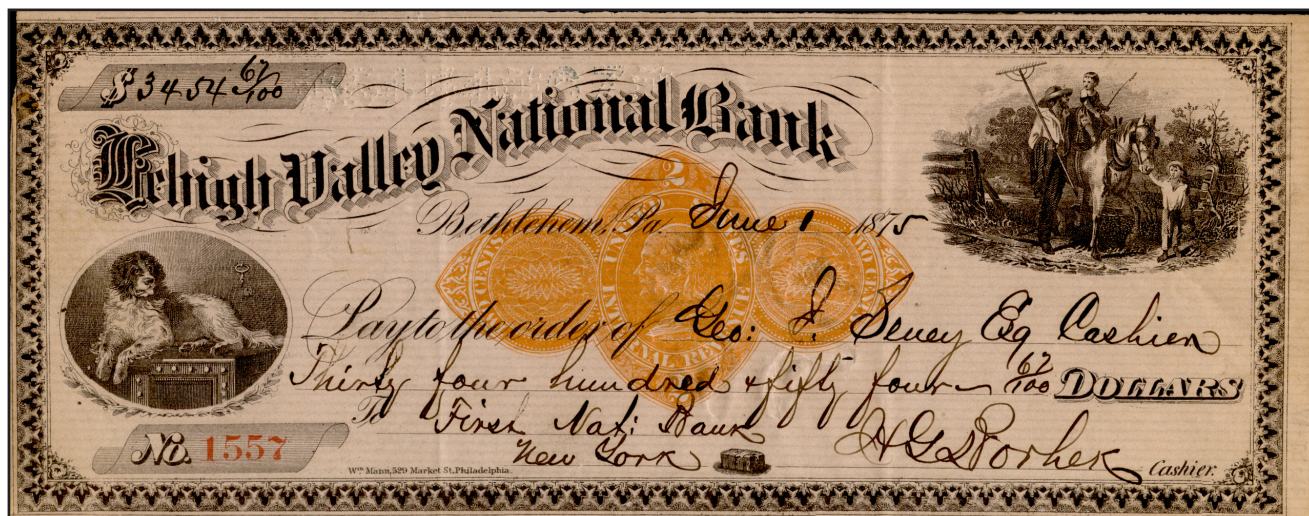 $3454 67/100
Lehigh Valley National Bank
Bethlehem, Pa. June 1 1875
Pay to the order of Geo: I. Seney Esq Cashier
Thirty four hundred & fifty four 67/100 DOLLARS
To First Nat: Bank
New York
Cashier.
No. 1557
Wm Mann, 529 Market St, Philadelphia.
2
TWO CENTS